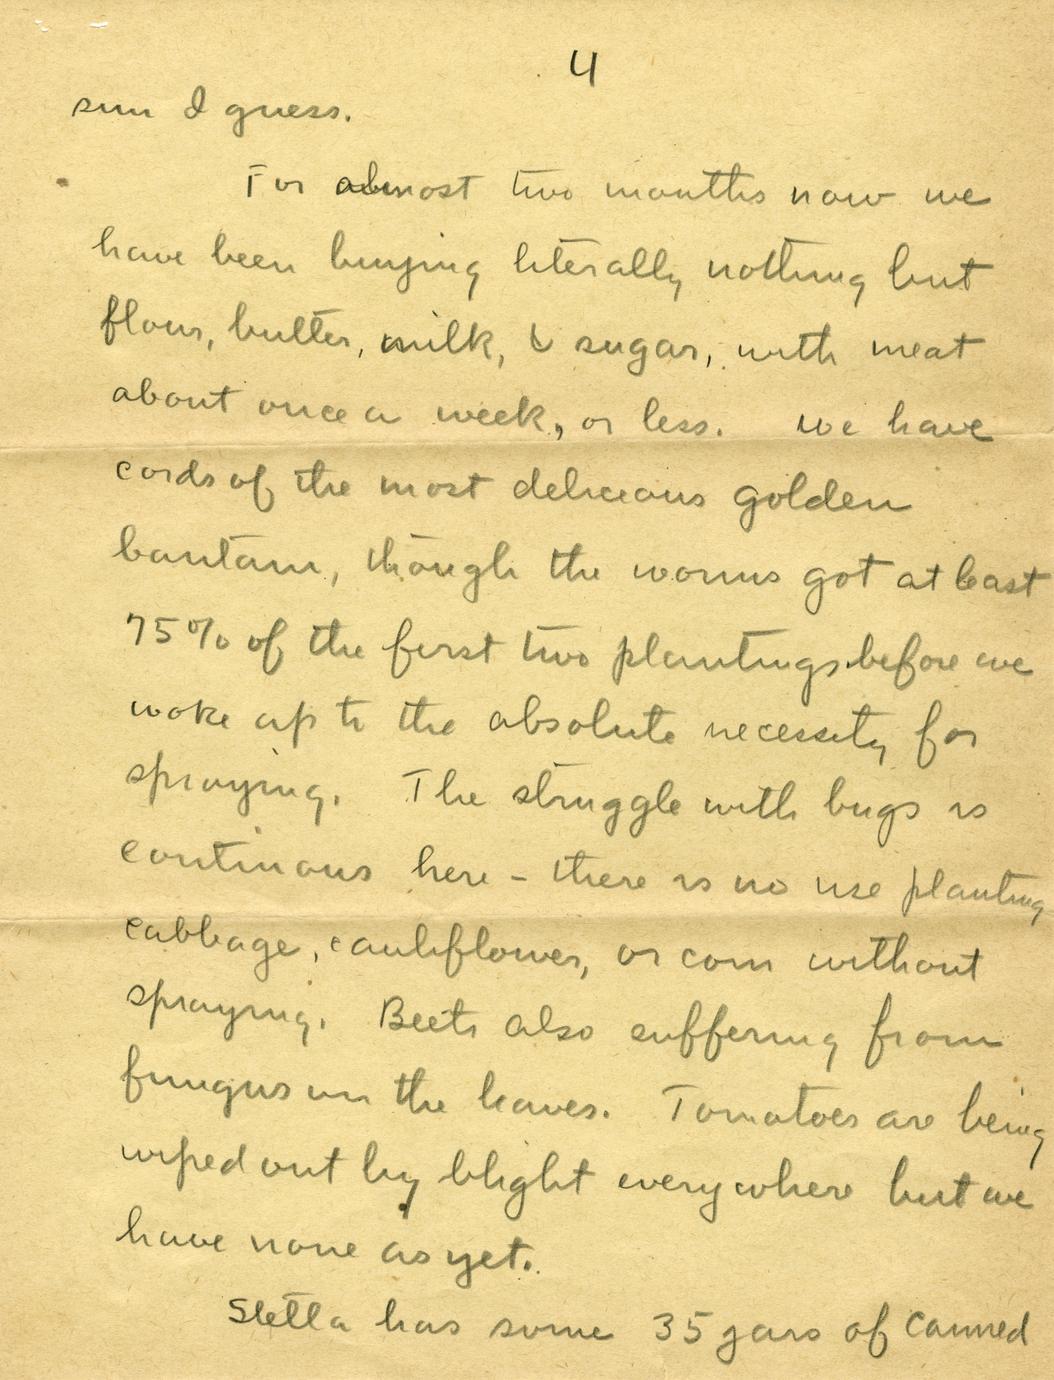 4
sun I guess.
For almost two months now we
have been buying literally nothing but
flour, butter, milk, & sugar, with meat
about once a week, or less. We have
cords of the most delicious golden
bantam, though the worms got at least
75% of the first two plantings before we
woke up to the absolute necessity for
spraying. The struggle with bugs is
continous here - there is no use planting
cabbage, cauliflower, or corn without
spraying. Beets also suffering from
fungus on the leaves. Tomatoes are being
wiped out by blight everywhere but we
have none as yet.
Stella has some 35 jars of canned